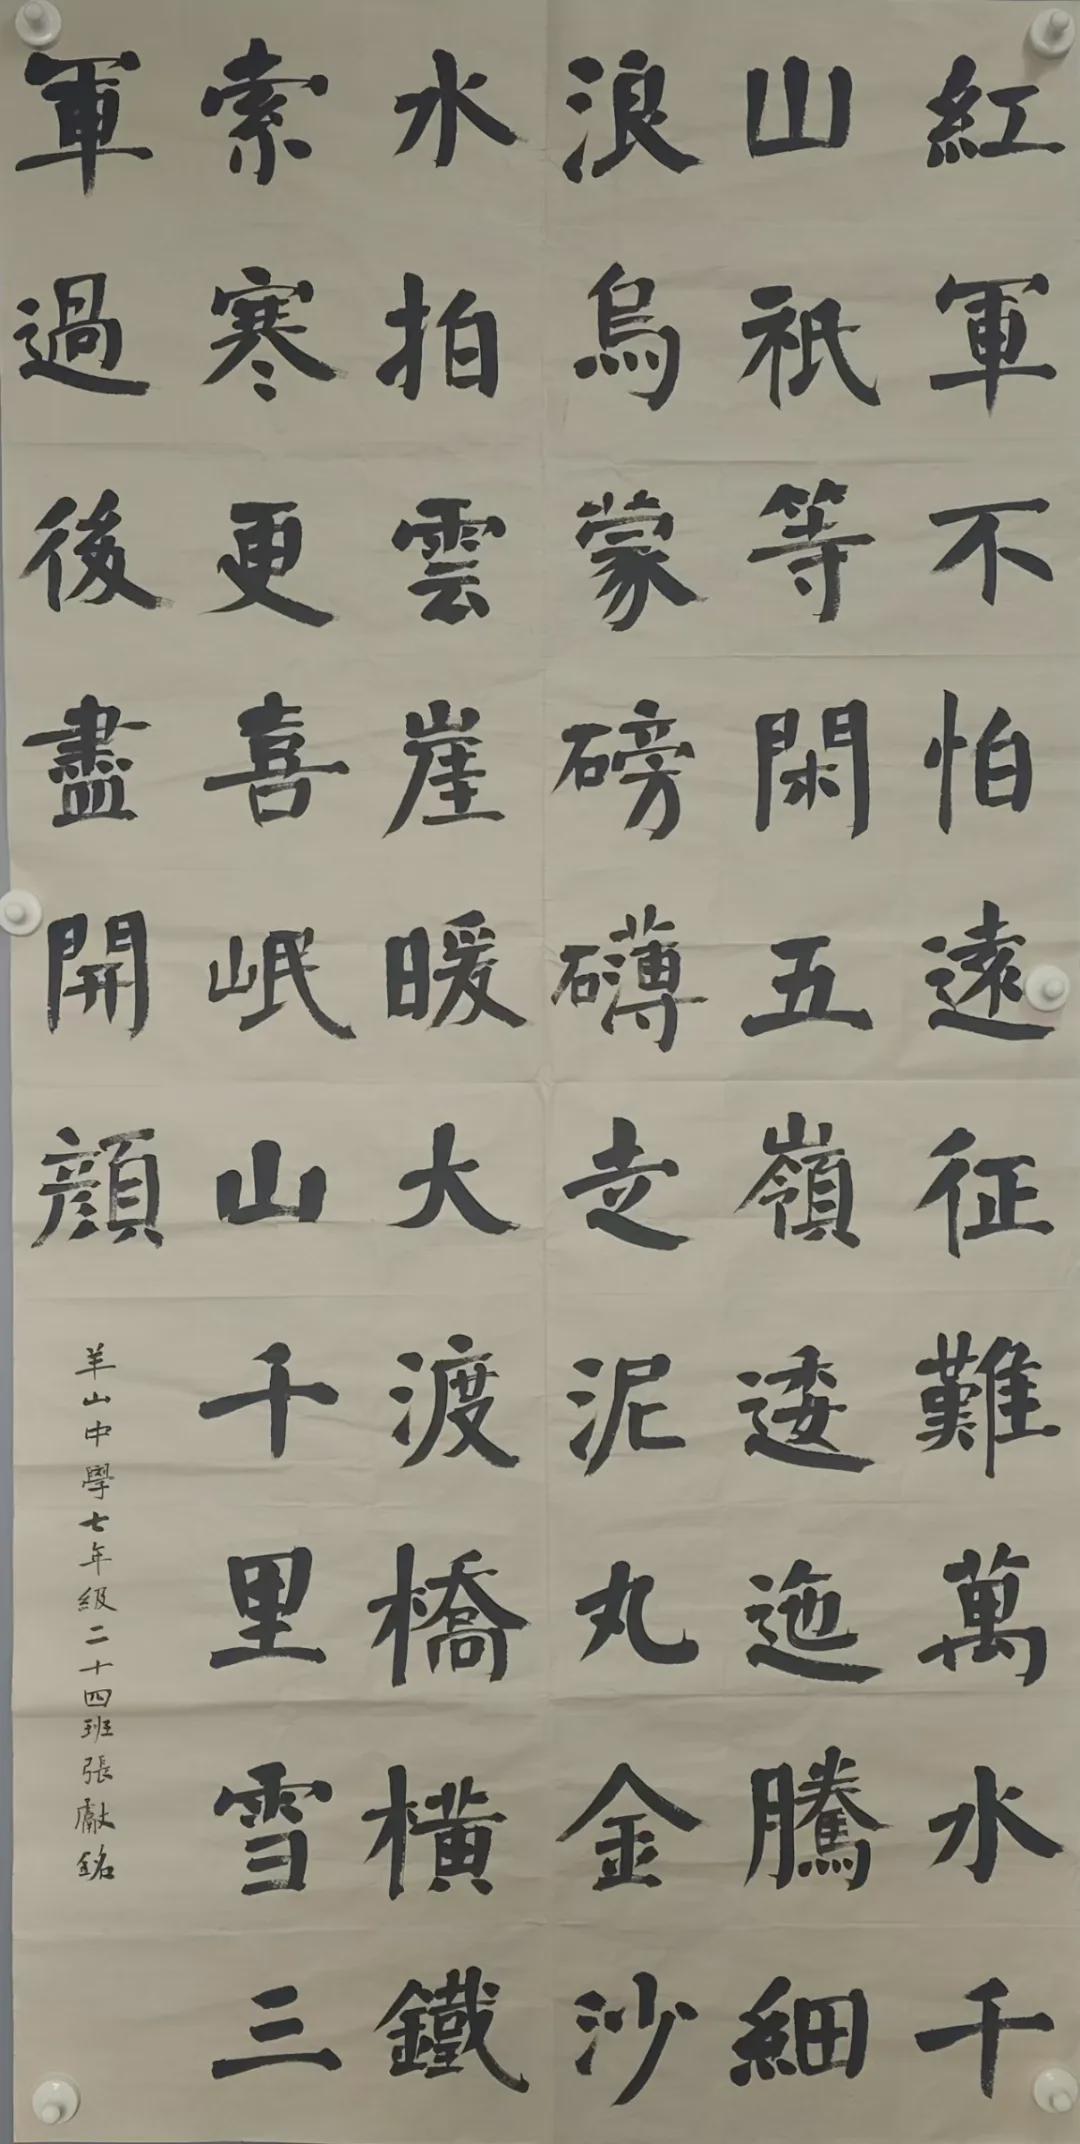 紅軍不怕遠征難萬水千
山祇等閑五嶺逶迤騰細
浪烏蒙磅礴走泥丸金沙
水拍雲崖暖大渡橋橫鐵
索寒更喜岷山千里雪三
軍過後盡開顔
羊山中學七年級二十四班張獻銘